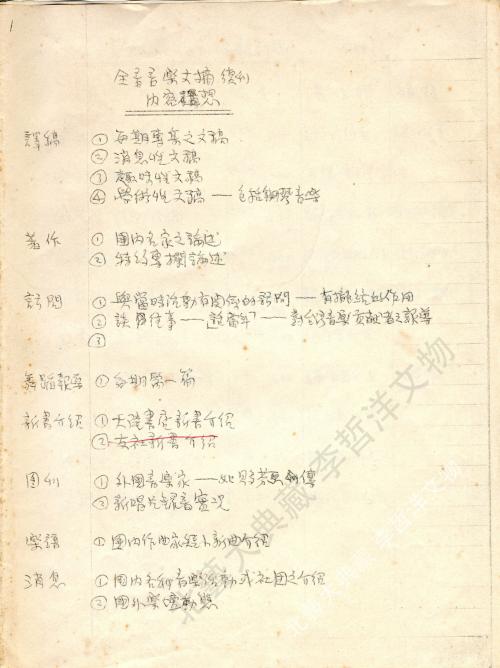 1
全音音樂文摘 續刊
內容構想
譯稿 ① 每期專集之文稿
② 消息性文稿
③ 趣味性文稿
④ 學術性文稿 — 包括鋼琴音樂
著作 ① 國內名家之論述
② 特約專欄論述
訪問 ① 與當時活動有關係的訪問 —
② 談 往事 — — 對台灣音樂貢獻者之報導
③
舞蹈報導 ① 每期 一篇
新書介紹 ① 大陸書店新書介紹
② 友社新書介紹
圖刊 ① 外國音樂家 —
② 新唱片錄音實況
樂譜 ① 國內作曲家 新曲介紹
消息 ① 國內各種音樂活動或社團之介紹
② 國外樂壇動態
北藝大典藏 李哲洋文物